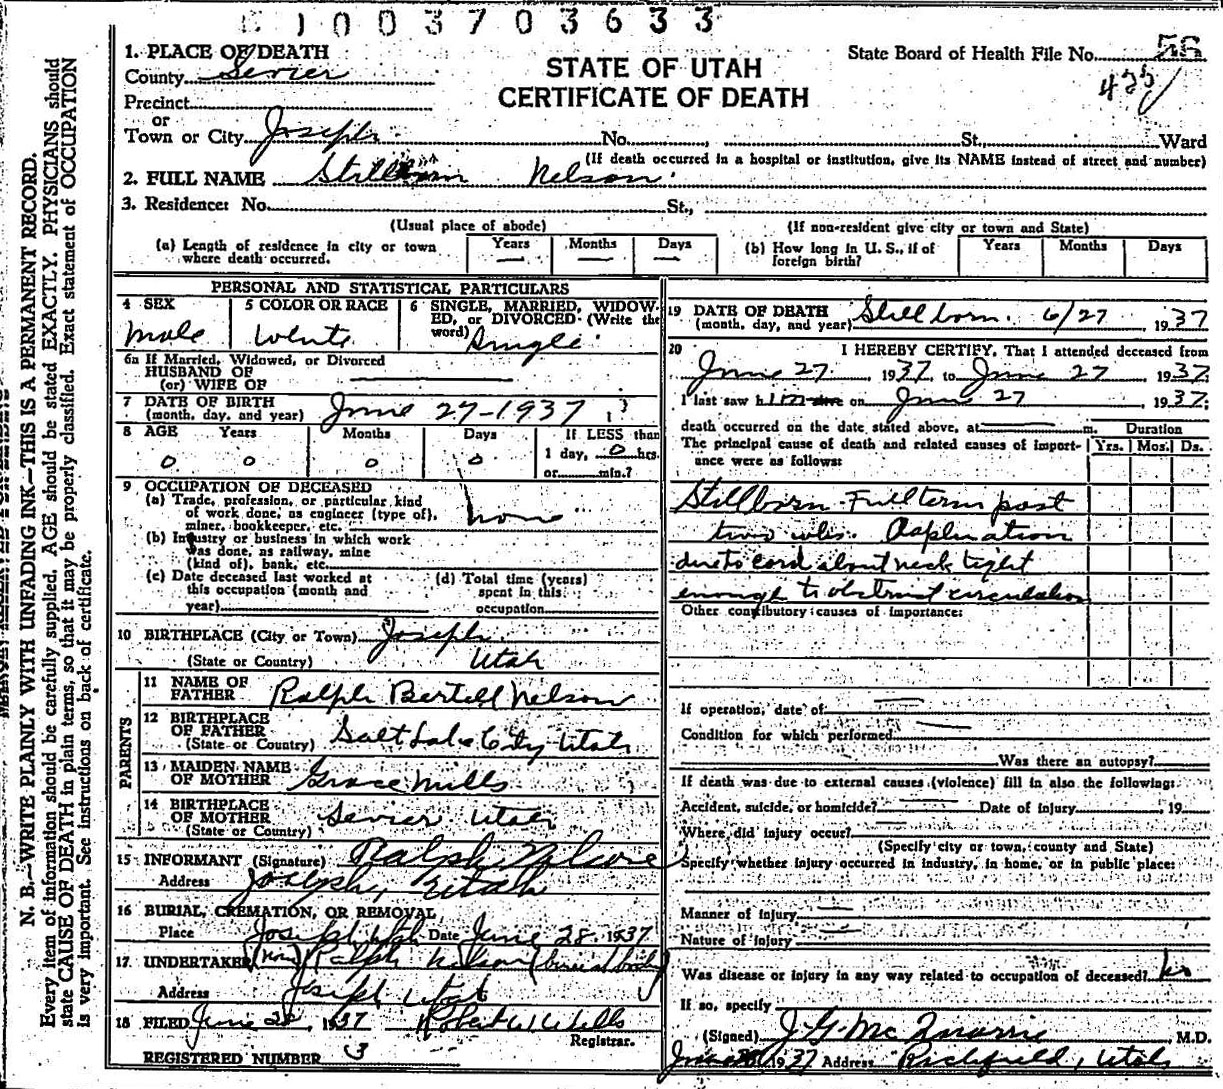 1003703633
1. PLACE OF DEATH
County Sevier
State Board of Health File No. 56
STATE OF UTAH
425
Precinct
CERTIFICATE OF DEATH
or
Town or City Joseph No. St., Ward
(If death occurred in a hospital or institution, give its NAME instead of street and number)
2. FULL NAME Stillborn Nelson
3. Residence: No. St.,
(Usual place of abode) (If non-resident give city or town and State)
(a) Length of residence in city or town where death occurred. Years — Months — Days —
(b) How long in U. S., if of foreign birth? Years Months Days
PERSONAL AND STATISTICAL PARTICULARS
4 SEX Male
5 COLOR OR RACE White
6 SINGLE, MARRIED, WIDOWED, or DIVORCED (Write the word) Single
6a If Married, Widowed, or Divorced
HUSBAND OF
(or) WIFE OF
7 DATE OF BIRTH
(month, day, and year) June 27-1937
8 AGE Years Months Days If LESS than
0 0 0 0 1 day, 0 hrs.
or min.?
9 OCCUPATION OF DECEASED
(a) Trade, profession, or particular kind
of work done, as engineer (type of),
miner, bookkeeper, etc. None
(b) Industry or business in which work
was done, as railway, mine
(kind of), bank, etc.
(c) Date deceased last worked at
this occupation (month and
year)
(d) Total time (years)
spent in this
occupation
10 BIRTHPLACE (City or Town) Joseph
(State or Country) Utah
PARENTS
11 NAME OF
FATHER Ralph Bertell Nelson
12 BIRTHPLACE
OF FATHER
(State or Country) Salt Lake City Utah
13 MAIDEN NAME
OF MOTHER Grace Mills
14 BIRTHPLACE
OF MOTHER
(State or Country) Sevier Utah
15 INFORMANT (Signature) Ralph Nelson
Address Joseph, Utah
16 BURIAL, CREMATION, OR REMOVAL
Place Joseph Utah Date June 28 1937
17. UNDERTAKER (None) Ralph Nelson (buried body)
Address Joseph Utah
18 FILED June 28, 1937 Robert W Wells
Registrar.
REGISTERED NUMBER 3
19 DATE OF DEATH
(month, day, and year) Stillborn. 6/27 1937
20 I HEREBY CERTIFY, That I attended deceased from
June 27 1937, to June 27 1937
I last saw him on June 27 1937;
death occurred on the date stated above, at m.
Duration
The principal cause of death and related causes of importance were as follows: Yrs. Mos. Ds.
Stillborn. Full term past
two wks. Asphyxiation
due to cord about neck tight
enough to obstruct circulation
Other contributory causes of importance:
If operation, date of
Condition for which performed
Was there an autopsy?
If death was due to external causes (violence) fill in also the following:
Accident, suicide, or homicide? Date of injury , 19
Where did injury occur?
(Specify city or town, county and State)
Specify whether injury occurred in industry, in home, or in public place:
Manner of injury
Nature of injury
Was disease or injury in any way related to occupation of deceased? No
If so, specify
(Signed) J. G. Mc , M.D.
1937 Address Richfield, Utah
N. B.—WRITE PLAINLY WITH UNFADING INK—THIS IS A PERMANENT RECORD.
Every item of information should be carefully supplied. AGE should be stated EXACTLY. PHYSICIANS should
state CAUSE OF DEATH in plain terms, so that it may be properly classified. Exact statement of OCCUPATION
is very important. See instructions on back of certificate.